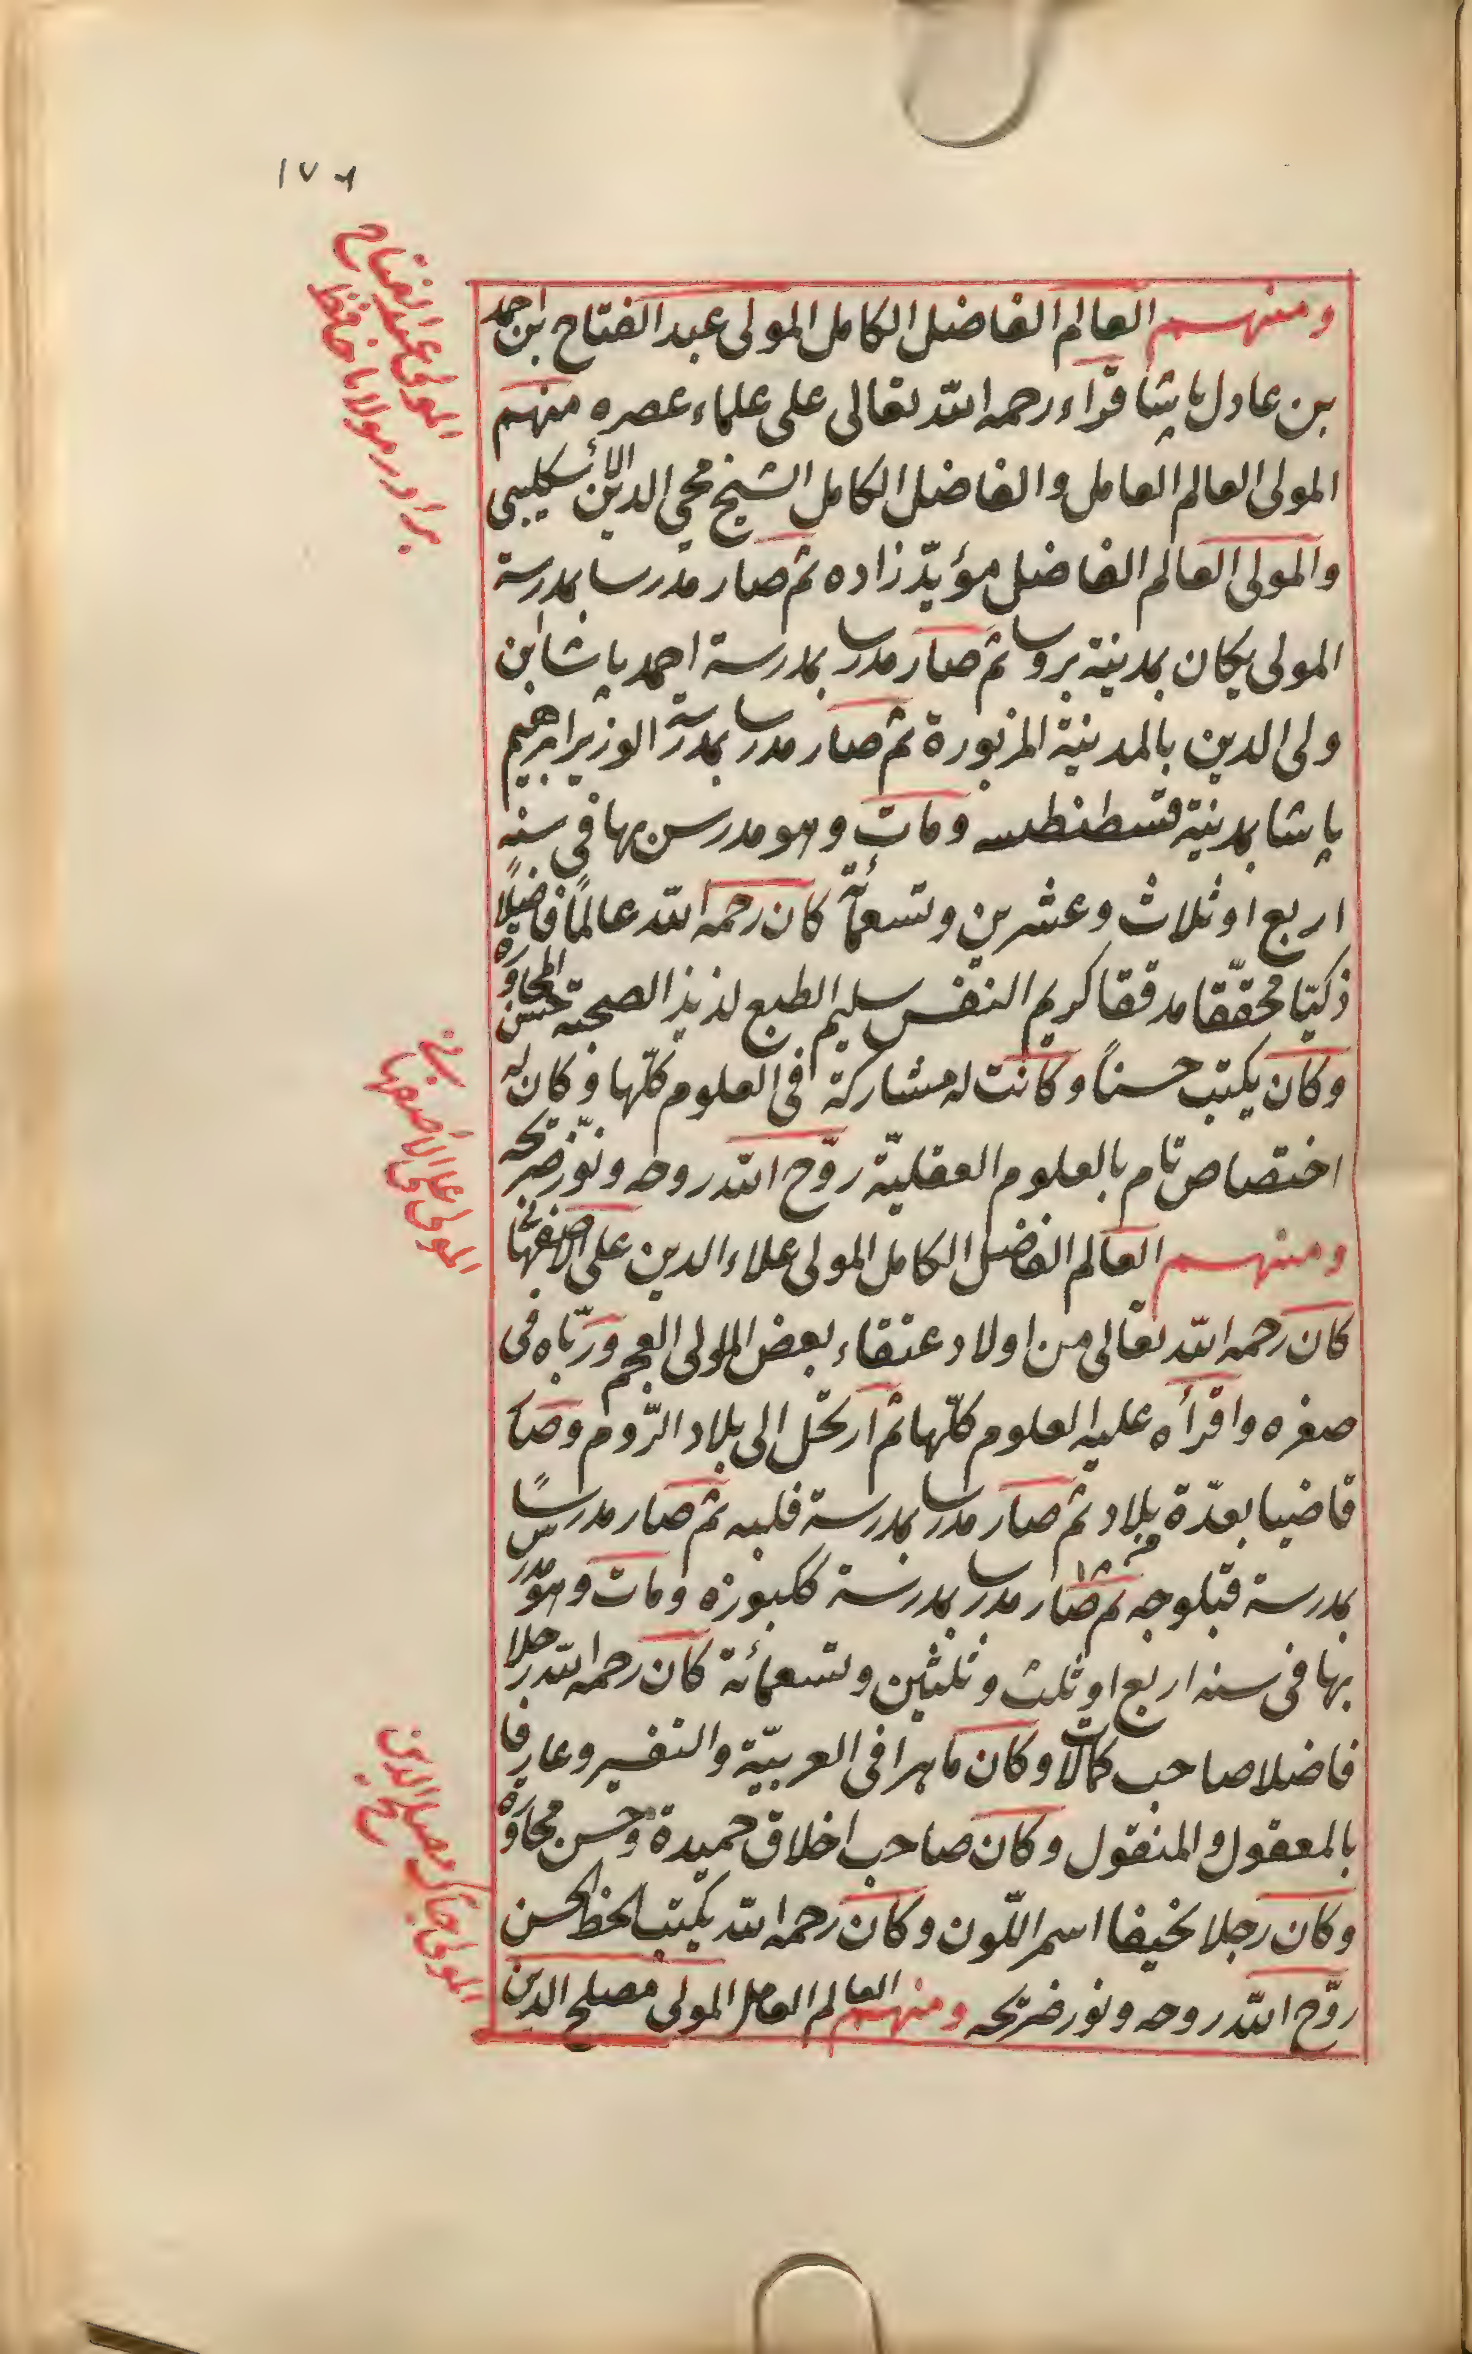 ومنهم العالم الفاضل الكامل المولى عبد الفتاح بن احمد
بن عادل پاشا قراء رحمه الله تعالى على علماء عصره منهم
المولى العالم العامل والفاضل الكامل الشيخ محي الدين الأسكليبي
والمولى العالم الفاضل مؤيّد زاده ثم صار مدرسا بمدرسة
المولى يكان بمدينة بروسا ثم صار مدرسا بمدرسة احمد پاشا بن
ولى الدين بالمدينة المزبورة ثم صار مدرسا بمدرسة الوزير ابرهيم
پاشا بمدينة قسطنطسه ومات وهو مدرس بها في سنه
اربع او ثلاث وعشرين وتسعمائة كان رحمه الله عالمًا فاضلًا
ذكيّا محقّقا مدققا كريم النفس سليم الطبع لذيذ الصحبة حسن المحاورة
وكان يكتب حسناً وكانت له مشاركة في العلوم كلّها وكان له
اختصاص تام بالعلوم العقليّة روّح الله روحه ونوّر ضريحه
ومنهم العالم الفاضل الكامل المولى علاء الدين على الاصفهانى
كان رحمه الله تعالى من اولاد عتقاء بعض الموالى العجم وربّاه في
صغره واقرأه عليه العلوم كلّها ثم ارتحل الى بلاد الرّوم وصار
قاضيا بعدّة بلاد ثم صار مدرسا بمدرسة فلبه ثم صار مدرسًا
بمدرسة قبلوجه ثم صار مدرسا بمدرسة ككبوزه ومات وهو مدرس
بها في سنه اربع او ثلث وثلثين وتسعمائة كان رحمه الله رجلا
فاضلا صاحب كمالات وكان ماهرا في العربيّة والتفسير وعارفا
بالمعقول والمنقول وكان صاحب اخلاق حميدة وحسن محاورة
وكان رجلا نحيفا اسمر اللّون وكان رحمه الله يكتب الخط الحسن
روّح الله روحه ونور ضريحه ومنهم العالم العامل المولى مصلح الدين
المولى عبد الفتاح
برادر مولانا حافظ
المولى على الأصفهانى
المولى مصلح الدين